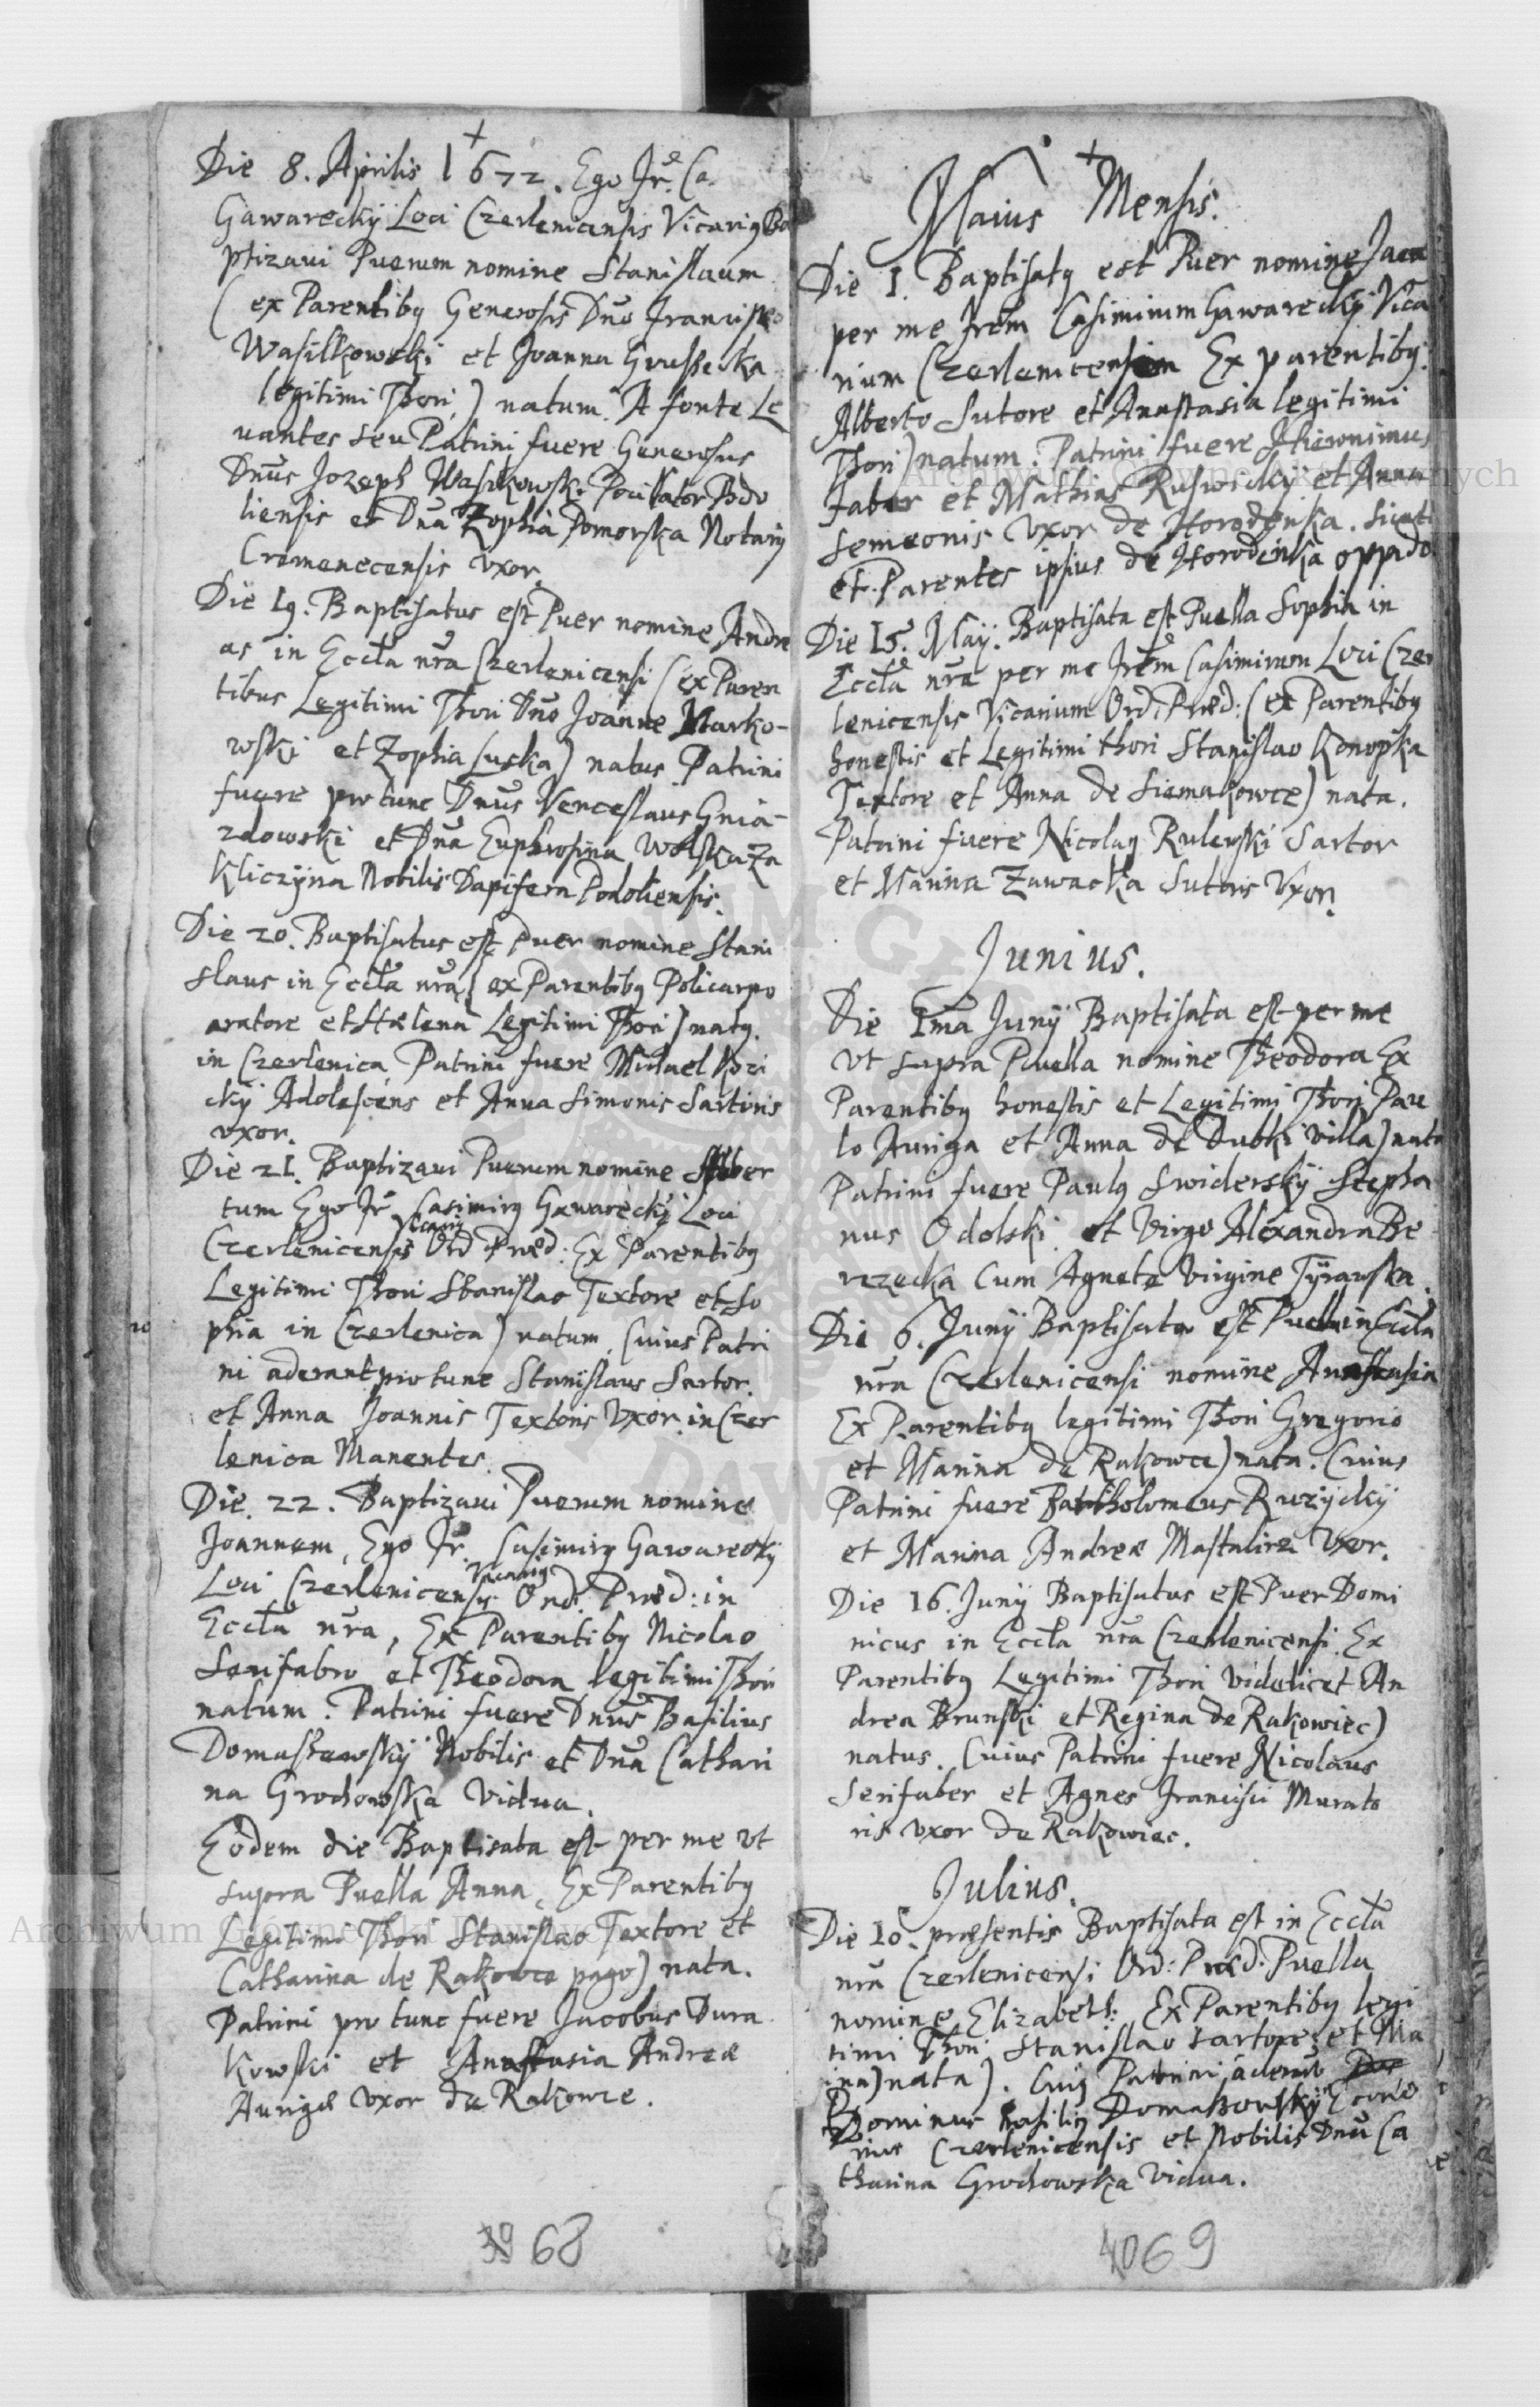 Die 8. Aprilis 1672. Ego Fr. Ca.
Gawareckÿ Loci Czerlenicensis Vicarig Ba
ptizavi Puerum nomine Stanislaum
(ex Parentibg Generosis Dno Francisco
Wasilkowski et Joanna Grussecka
legitimi Thori) natum. A fonte Le
vantes seu Patrini fuere Generosus
Dnus Jozeph Wasilkowski Pocillator Podo
liensis et Dna Zophia Pomorska Notarij
Cremenecensis vxor.
Die 19. Baptisatus est Puer nomine Andre
as in Eccla nra Czerlenicensi (ex Paren
tibus Legitimi Thori Dno Joanne Marko-
wski et Zophia Luska) natus Patrini
fuere pro tunc Dnus Venceslaus Gnia-
zdowski et Dna Euphrosina Wolska Za
Kliczÿna Nobilis Dapifera Podoliensis.
Die 20. Baptisatus est Puer nomine Stani
slaus in Eccla nra (ex Parentibg Policarpo
aratore et Hælena Legitimi Thori) natg.
in Czerlenica Patrini fuere Michael Kozi
ckÿ Adolescens et Anna Simonis Sartoris
vxor.
Die 21. Baptizavi Puerum nomine Alber
tum Ego Fr. Casimirg Gawareckÿ Loci
Czerlenicensis Vicarig Ord Præd: Ex Parentibg
Legitimi Thori Stanislao Textore et So
phia in Czerlenica) natum, Cuius Patri
ni aderant pro tunc Stanislaus Sartor
et Anna Joannis Textoris Vxor in Czer
lenica Manentes.
Die. 22. Baptizavi Puerum nomine
Joannem, Ego Fr. Casimirg Gawareckÿ
Loci Czerlenicensis Vicarig Ord: Præd: in
Eccla nra, Ex Parentibg Nicolao
Serifabro et Theodora legitimi Thori
natum. Patrini fuere Dnus Basilius
Domaszewskÿ Nobilis et Dna Cathari
na Grochowska Vidua.
Eodem die Baptisata est per me vt
supra Puella Anna, Ex Parentibg
Legitimi Thori Stanislao Textore et
Catharina de Rakowce pago) nata.
Patrini pro tunc fuere Jacobus Dura
kowski et Anastasia Andreæ
Aurigæ vxor de Rakowce.
68
Maius Mensis.
Die 1. Baptisatg est Puer nomine
per me Frem Casimirum Gawareckÿ Vica
rium Czerlenicensem Ex parentibg
Alberto Sutore et Anastasia legitimi
Thori) natum. Patrini fuere Hieronimus
Faber et Mathias et Anna
Semeonis vxor de Horodenka. sicuti
et Parentes ipsius de Horodenka oppido
Die 15. Maÿ. Baptisata est Puella Sophia in
Eccla nra per me Frem Casimirum Loci Czer
lenicensis Vicarium Ord: Præd: (ex Parentibg
honestis et Legitimi thori Stanislao Konopka
Textore et Anna de Siemakowce) nata.
Patrini fuere Nicolag Rulewski Sartor
et Marina Zawacka Sutoris Vxor.
Junius.
Die 1ma Junÿ Baptisata est per me
vt supra Puella nomine Theodora Ex
Parentibg honestis et Legitimi Thori Pau
lo Auriga et Anna de Dubki villa) nata
Patrini fuere Paulg Swiderskÿ Stepha
nus Odolski et Virgo Alexandra Be
rezecka Cum Agneta Virgine Tÿrawska.
Die 6. Junÿ Baptisata est Puella in Eccla
nra Czerlenicensi nomine Anastasia
Ex Parentibg legitimi Thori Gregorio
et Marina de Rakowce) nata. Cuius
Patrini fuere Bartholomeus Ruzÿckÿ
et Marina Andreæ Mastalirz Vxor.
Die 16. Junÿ Baptisatus est Puer Domi
nicus in Eccla nra Czerlenicensi Ex
Parentibg Legitimi Thori videlicet An
drea Brunski et Regina de Rakowiec)
natus. Cuius Patrini fuere Nicolaus
Serifaber et Agnes Francisci Murato
ris vxor de Rakowiec.
Julius.
Die 10. præsentis Baptisata est in Eccla
nra Czerlenicensi Ord: Præd: Puella
nomine Elizabeth: Ex Parentibg legi
timi Thori Stanislao sartore et Ma
ina) nata). Cuig Patrini aderant
Dominus Basilig Domaszowskÿ Econo
mus Czerlenicensis et Nobilis Dna Ca
tharina Grochowska Vidua.
4069
Archiwum Główne Akt Dawnych
Archiwum Główne Akt Dawnych